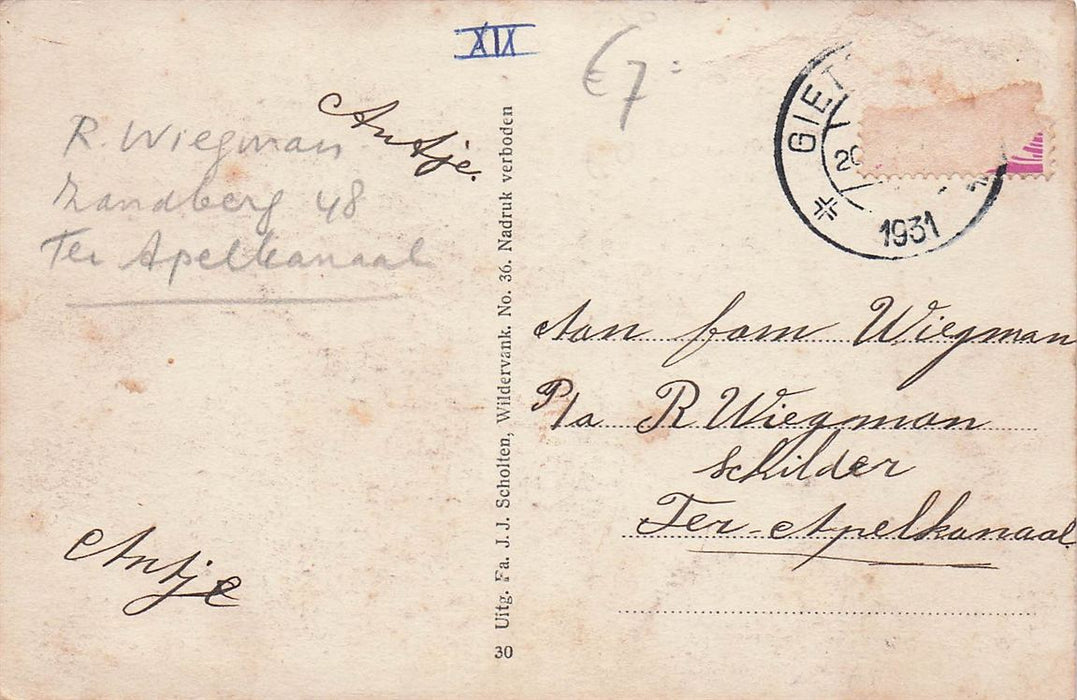 XIX
€7:
R. Wiegman
Zandberg 48
Ter Apelkanaal
Antje.
Antje
30 Uitg. Fa. J. J. Scholten, Wildervank. No. 36. Nadruk verboden
GIET
20
1931
Aan fam Wiegman
P/a R Wiegman
schilder
Ter-Apelkanaal